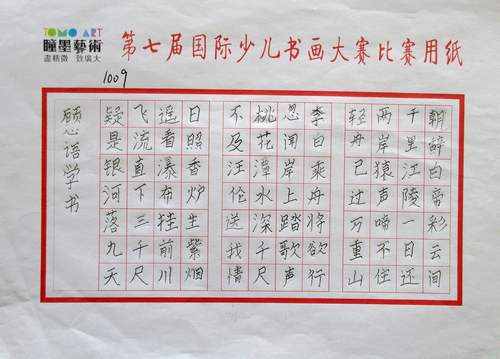 TOMO ART
瞳墨藝術
盡精微 致廣大
第七届国际少儿书画大赛比赛用纸
1009
朝辞白帝彩云间
千里江陵一日还
两岸猿声啼不住
轻舟已过万重山
李白乘舟将欲行
忽闻岸上踏歌声
桃花潭水深千尺
不及汪伦送我情
日照香炉生紫烟
遥看瀑布挂前川
飞流直下三千尺
疑是银河落九天
顾思语学书